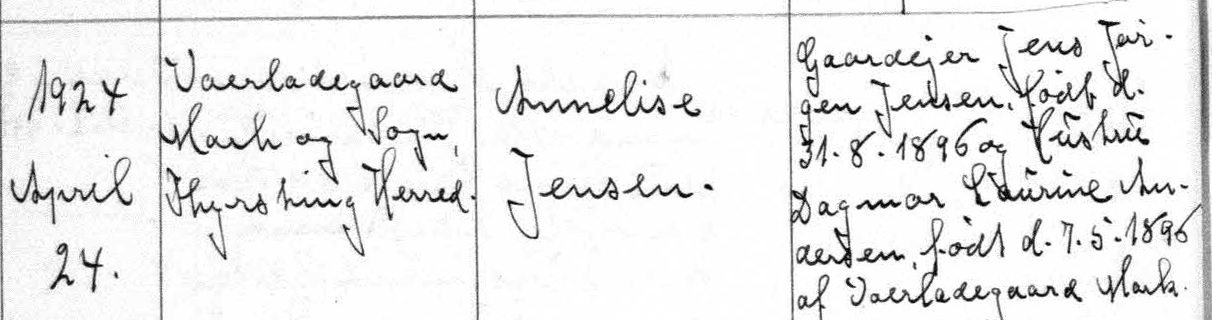 1924
April
24.
Vaerladegaard
Mark og Sogn,
Thyrsting Herred.
Annelise
Jensen.
Gaardejer Jens Jør-
gen Jensen, født d.
31.8.1896 og Hustru
Dagmar Laurine An-
dersen, født d. 7.5.1896
af Vaerladegaard Mark.